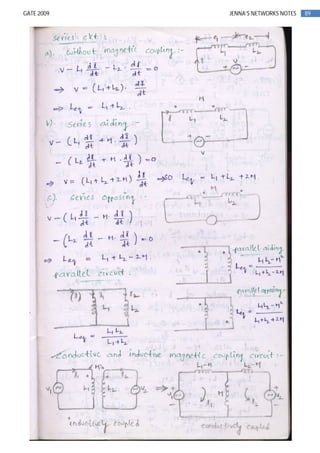 GATE 2009 JENNA'S NETWORKS NOTES 89
series ckts:
a). without magnetic coupling :-
V - L₁ dI/dt - L₂ · dI/dt = 0
⇒ V = (L₁+L₂) · dI/dt
⇒ Leq = L₁+L₂.
L₁ L₂
V
b). series aiding :-
V - (L₁ dI/dt + M · dI/dt)
- (L₂ dI/dt + M · dI/dt) = 0
⇒ V = (L₁+L₂+2M) dI/dt ⇒ SO Leq = L₁+L₂+2M
M
L₁ L₂
V
c). series opposing :-
V - (L₁ dI/dt - M · dI/dt)
- (L₂ dI/dt - M · dI/dt) = 0
⇒ Leq = L₁+L₂-2M
M
L₁ L₂
parallel aiding
Leq = L₁L₂-M² / L₁+L₂-2M
parallel circuit :
L₁ L₂
Leq = L₁L₂ / L₁+L₂
parallel opposing -
Leq = L₁L₂-M² / L₁+L₂+2M
conductive and inductive magnetic coupling circuit :-
V₁ I₁ L₁ M L₂ I₂ V₂
⇒ L₁-M L₂-M
V₁ I₁ M I₂ V₂
inductively coupled
conductively coupled